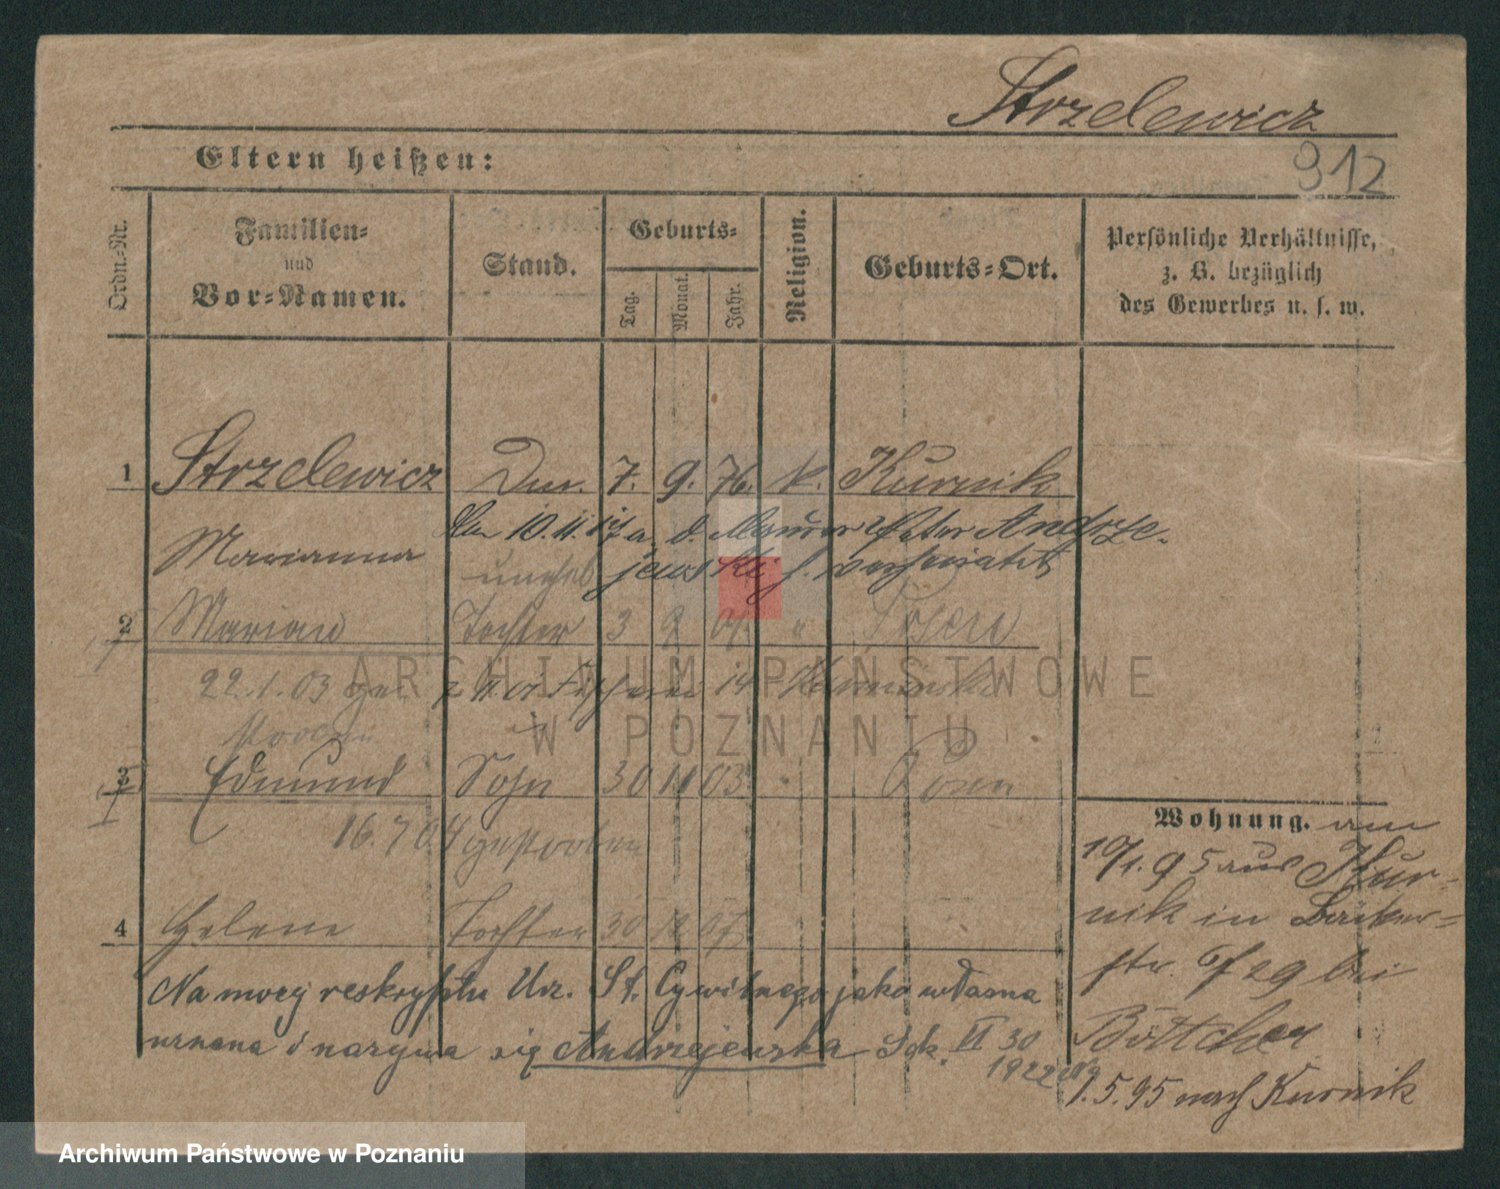 Strzelewicz
912
Eltern heißen:
Ordn.-Nr.
Familien-
und
Vor-Namen.
Stand.
Geburts-
Tag.
Monat.
Jahr.
Religion.
Geburts-Ort.
Persönliche Verhältnisse,
z. B. bezüglich
des Gewerbes u. s. w.
1 Strzelewicz 7. 9. 76. k. Kurnik
10. 11. 17 a. d. Maurer Peter Andrze-
Marianna jewski
2 Marian Tochter 3 9 Posen
22.1.03
3 Edmund Sohn 30 11 03 Posen
16.7.04 gestorben
4 Helene Tochter 30
Na mocy reskryptu Urz. St. Cywilnego jako własna
uznana i nazywa się Andrzejewska VI 30
1922
Wohnung. am
10/1.95 aus Kur-
nik in Bäcker-
str. 29 bei
Böttcher
1.5.95 nach Kurnik
ARCHIWUM PAŃSTWOWE
W POZNANIU
Archiwum Państwowe w Poznaniu